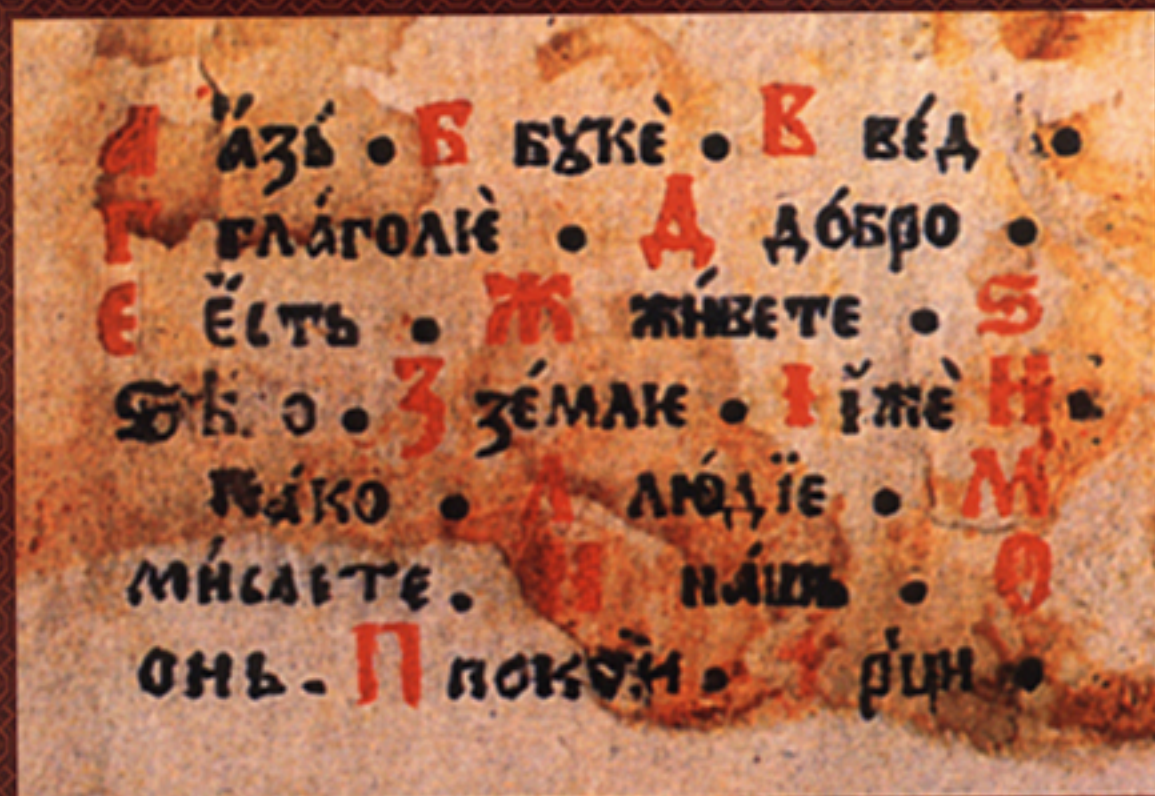 А а҆́зъ • Б бꙋкѐ • В вѣ́д •
Г глаго́лѥ̀ • Д до́бро •
Є є҆́сть • Ж жи́вєтє • Ѕ
ѕѣ о • З зє́млѥ • І і҆жѐ Н •
ꙗ҆́ко • Л лю́дїє • М
ми́слєтє • Н на́шь • О
онь • П покой • рци •